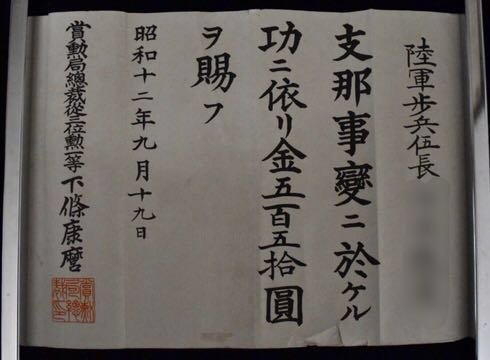 陸軍歩兵伍長
支那事變ニ於ケル
功ニ依リ金五百五拾圓
ヲ賜フ
昭和十二年九月十九日
賞勲局總裁從三位勲一等下條康麿